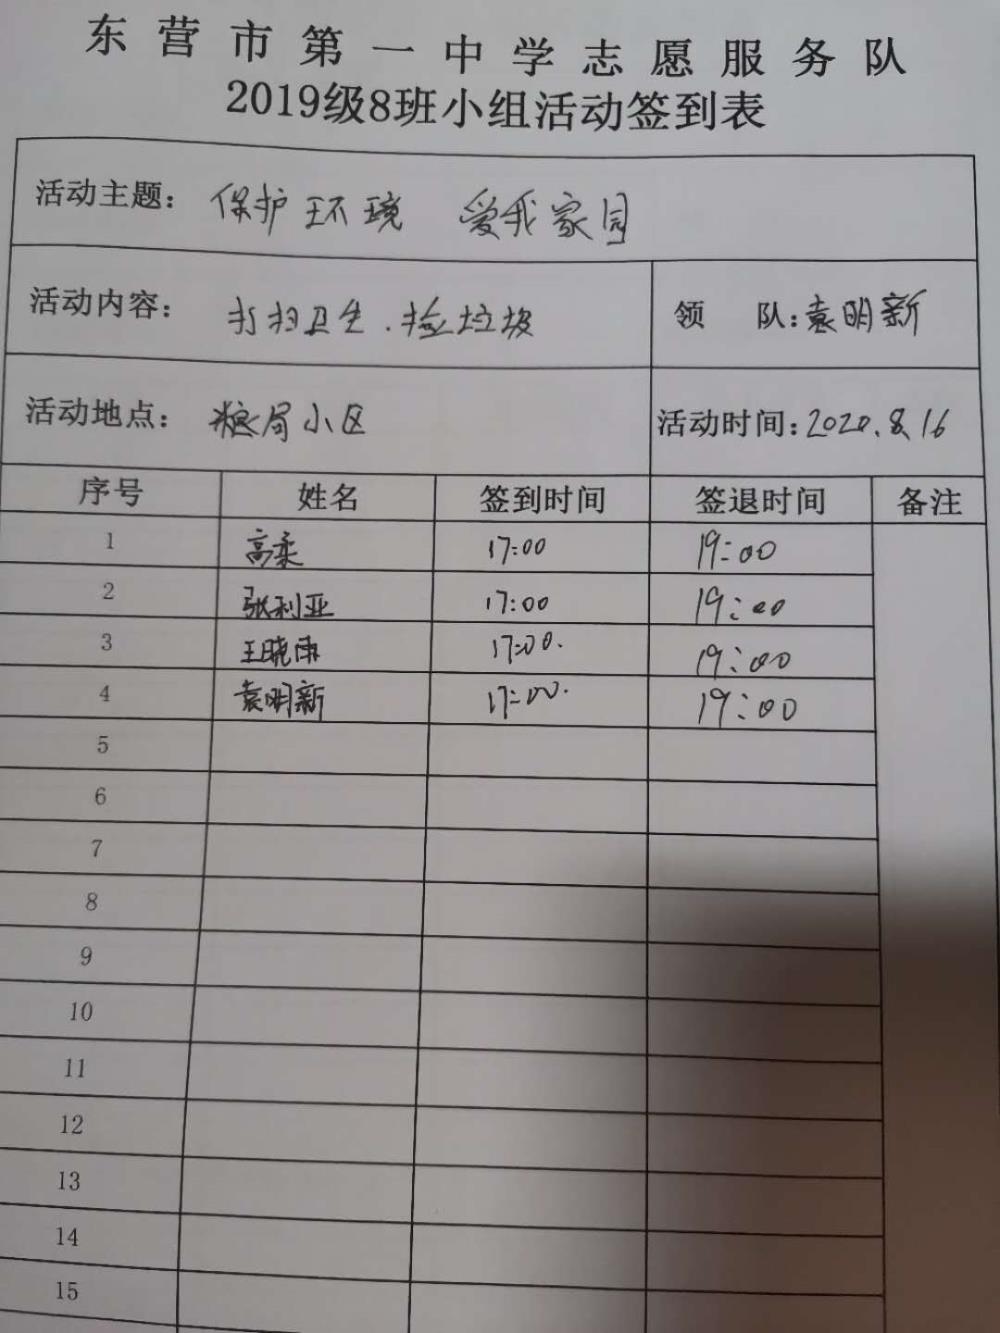 东营市第一中学志愿服务队
2019级8班小组活动签到表
活动主题： 保护环境 爱我家园
活动内容： 打扫卫生.捡垃圾 领 队：袁明新
活动地点： 粮局小区 活动时间：2020.8.16
序号 姓名 签到时间 签退时间 备注
1 高柔 17:00 19:00
2 张利亚 17:00 19:00
3 王晓雨 17:00. 19:00
4 袁明新 17:00. 19:00
5
6
7
8
9
10
11
12
13
14
15